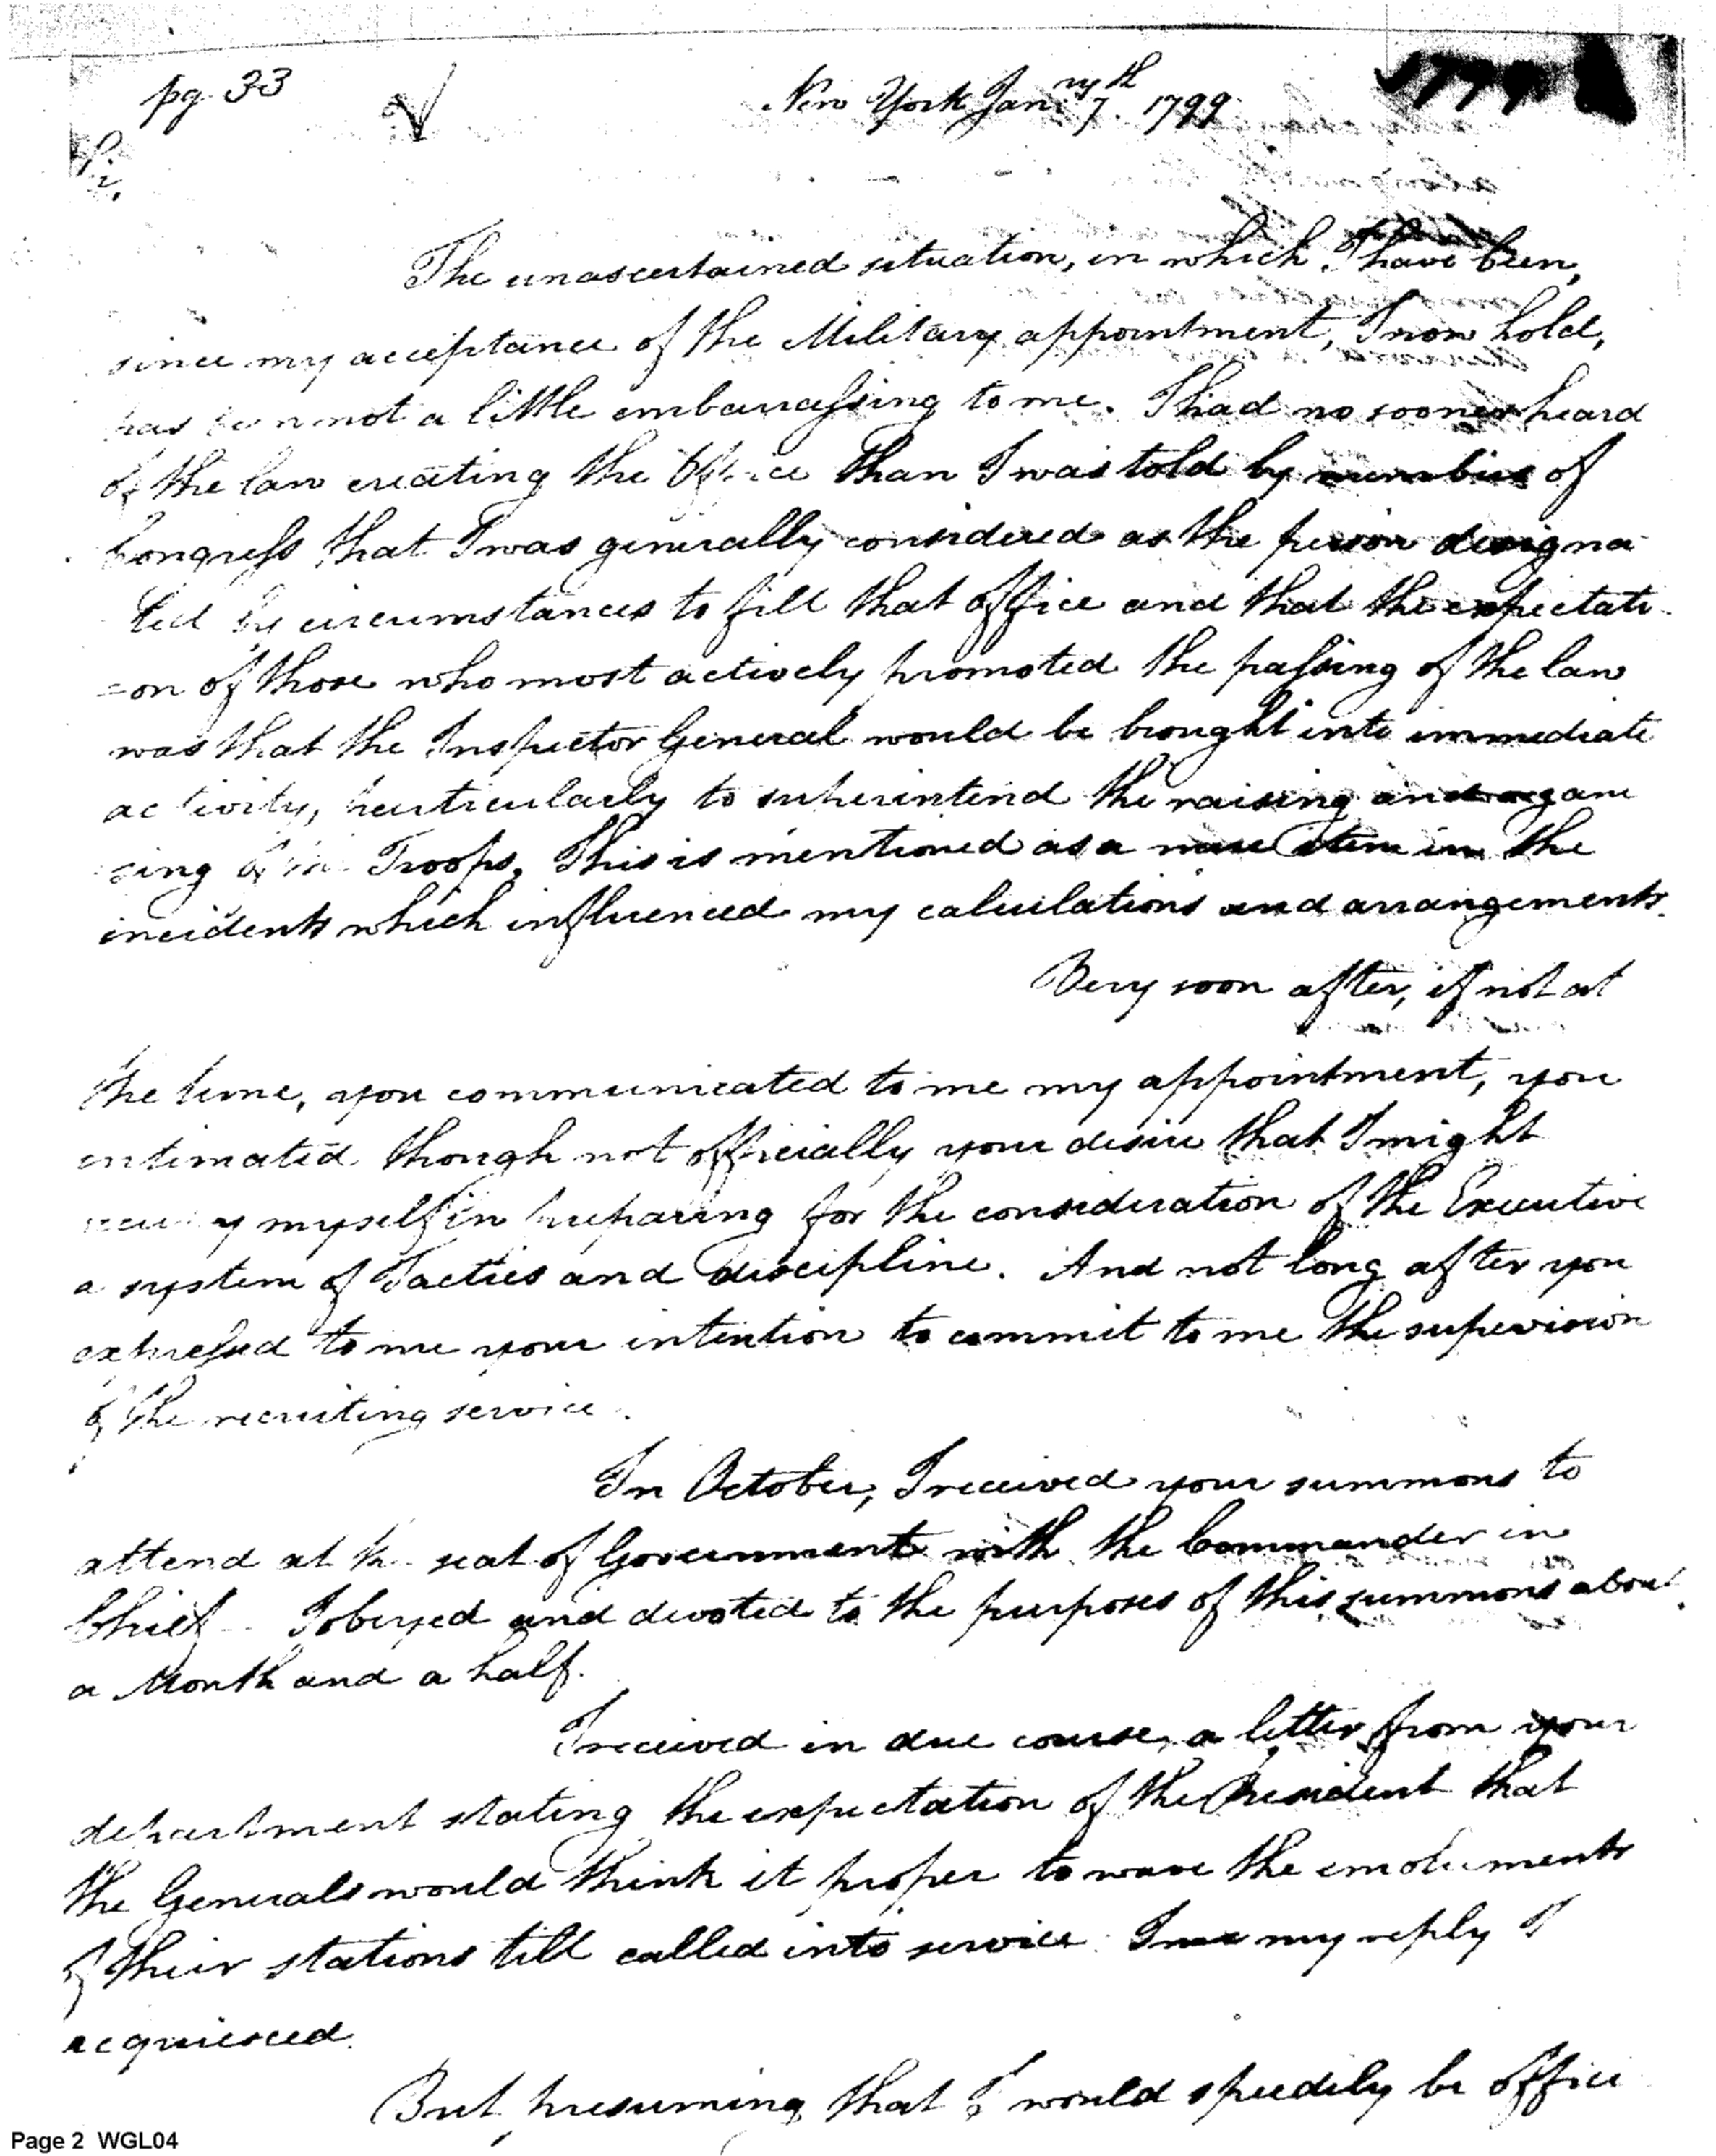 pg. 33
New York Jan:ry 7th. 1799
1799
P.
2.
The unascertained situation, in which I have been,
since my acceptance of the Military appointment, I now hold,
has been not a little embarrassing to me. I had no sooner heard
of the law creating the Office than I was told by members of
Congress that I was generally considered as the person designa
ted by circumstances to fill that office and that the expectati
=on of those who most actively promoted the passing of the law
was that the Inspector General would be brought into immediate
activity, particularly to superintend the raising and organi
zing of the Troops. This is mentioned as a mere item in the
incidents which influenced my calculations and arrangements.
Very soon after, if not at
the time, you communicated to me my appointment, you
intimated though not officially your desire that I might
occupy myself in preparing for the consideration of the Executive
a system of Tactics and discipline. And not long after you
expressed to me your intention to commit to me the supervision
of the recruiting service.
In October, I received your summons to
attend at the seat of Government with the Commander in
Chief - I obeyed and devoted to the purposes of this summons about
a Month and a half.
I received in due course, a letter from your
department stating the expectation of the President that
the Generals would think it proper to wave the emoluments
of their stations till called into service. In my reply I
acquiesced.
But presuming that I would speedily be offici
Page 2 WGL04